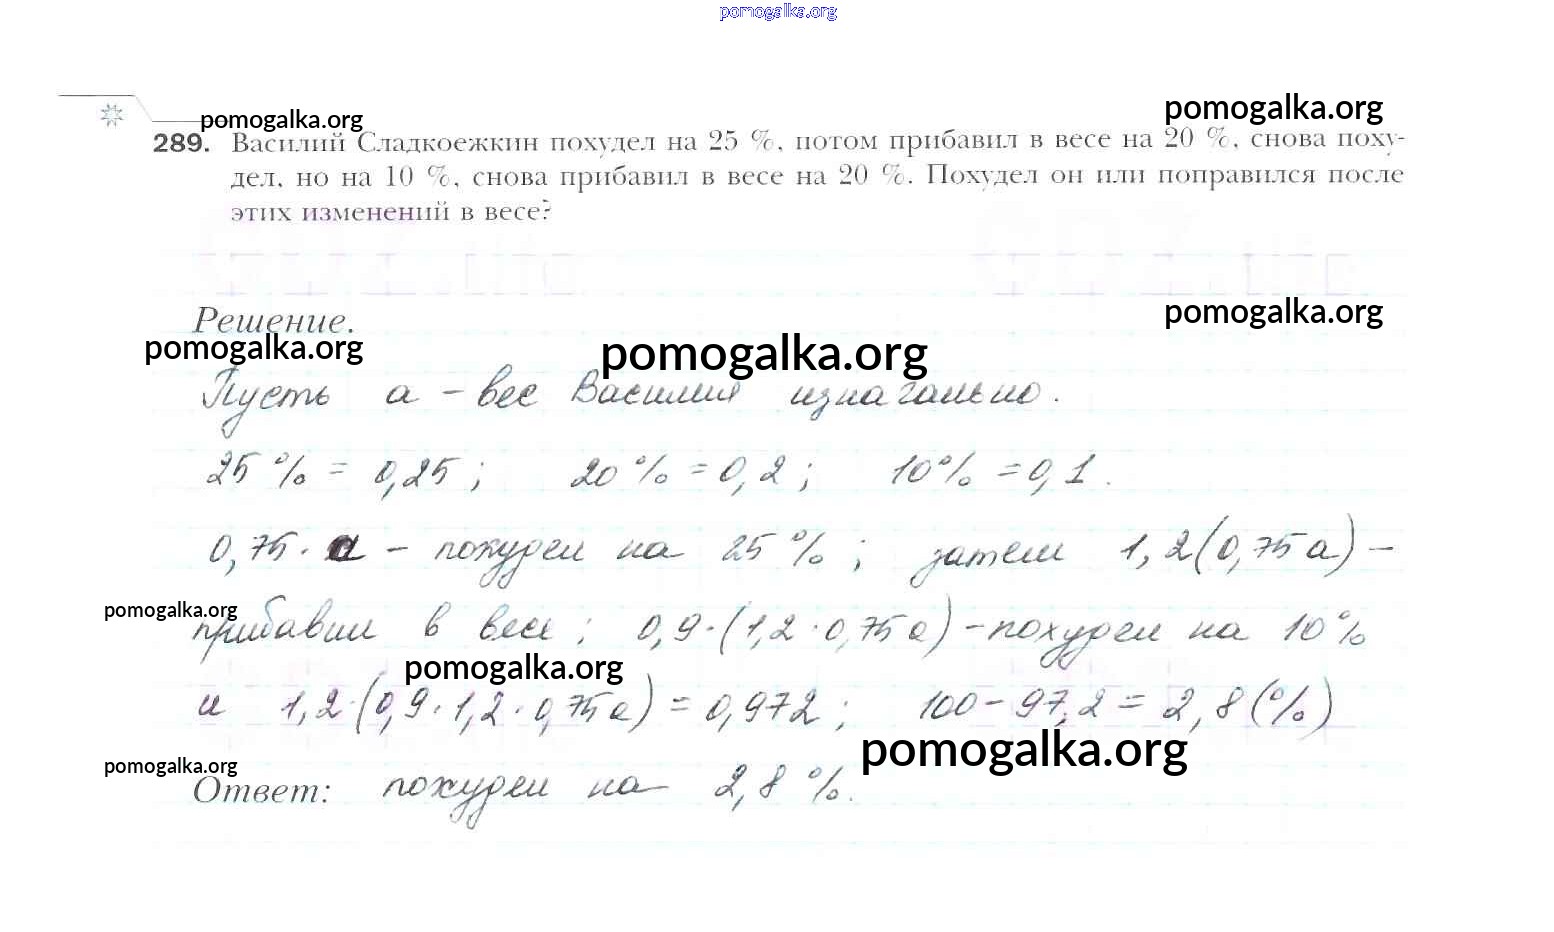 pomogalka.org
pomogalka.org
pomogalka.org
289. Василий Сладкоежкин похудел на 25 %, потом прибавил в весе на 20 %, снова поху-
дел, но на 10 %, снова прибавил в весе на 20 %. Похудел он или поправился после
этих изменений в весе?
pomogalka.org
Решение.
pomogalka.org
pomogalka.org
Пусть а – вес Василия изначально.
25 % = 0,25; 20 % = 0,2; 10 % = 0,1.
0,75 · а – похудел на 25 %; затем 1,2(0,75 а) –
pomogalka.org
прибавил в весе; 0,9·(1,2 · 0,75 а) – похудел на 10 %
pomogalka.org
и 1,2·(0,9 · 1,2 · 0,75 а) = 0,972; 100 – 97,2 = 2,8 (%)
pomogalka.org
pomogalka.org
Ответ: похудел на 2,8 %.